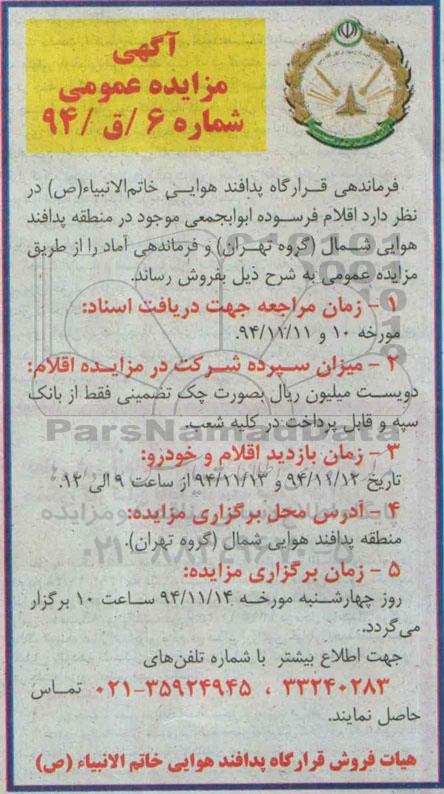 آگهی
مزایده عمومی
شماره ۶ /ق /۹۴
فرماندهی قرارگاه پدافند هوایی خاتم‌الانبیاء(ص) در
نظر دارد اقلام فرسوده ابوابجمعی موجود در منطقه پدافند
هوایی شمال (گروه تهران) و فرماندهی آماد را از طریق
مزایده عمومی به شرح ذیل بفروش رساند.
۱ - زمان مراجعه جهت دریافت اسناد:
مورخه ۱۰ و ۹۴/۱۱/۱۱.
۲ - میزان سپرده شرکت در مزایده اقلام:
دویست میلیون ریال بصورت چک تضمینی فقط از بانک
سپه و قابل پرداخت در کلیه شعب.
۳ - زمان بازدید اقلام و خودرو:
تاریخ ۹۴/۱۱/۱۲ و ۹۴/۱۱/۱۳ از ساعت ۹ الی ۱۲.
۴ - آدرس محل برگزاری مزایده:
منطقه پدافند هوایی شمال (گروه تهران).
۵ - زمان برگزاری مزایده:
روز چهارشنبه مورخه ۹۴/۱۱/۱۴ ساعت ۱۰ برگزار
می‌گردد.
جهت اطلاع بیشتر با شماره تلفن‌های
۳۳۲۴۰۲۸۳ ، ۰۲۱-۳۵۹۲۴۹۴۵ تماس
حاصل نمایند.
هیات فروش قرارگاه پدافند هوایی خاتم الانبیاء (ص)
ParsNamadData